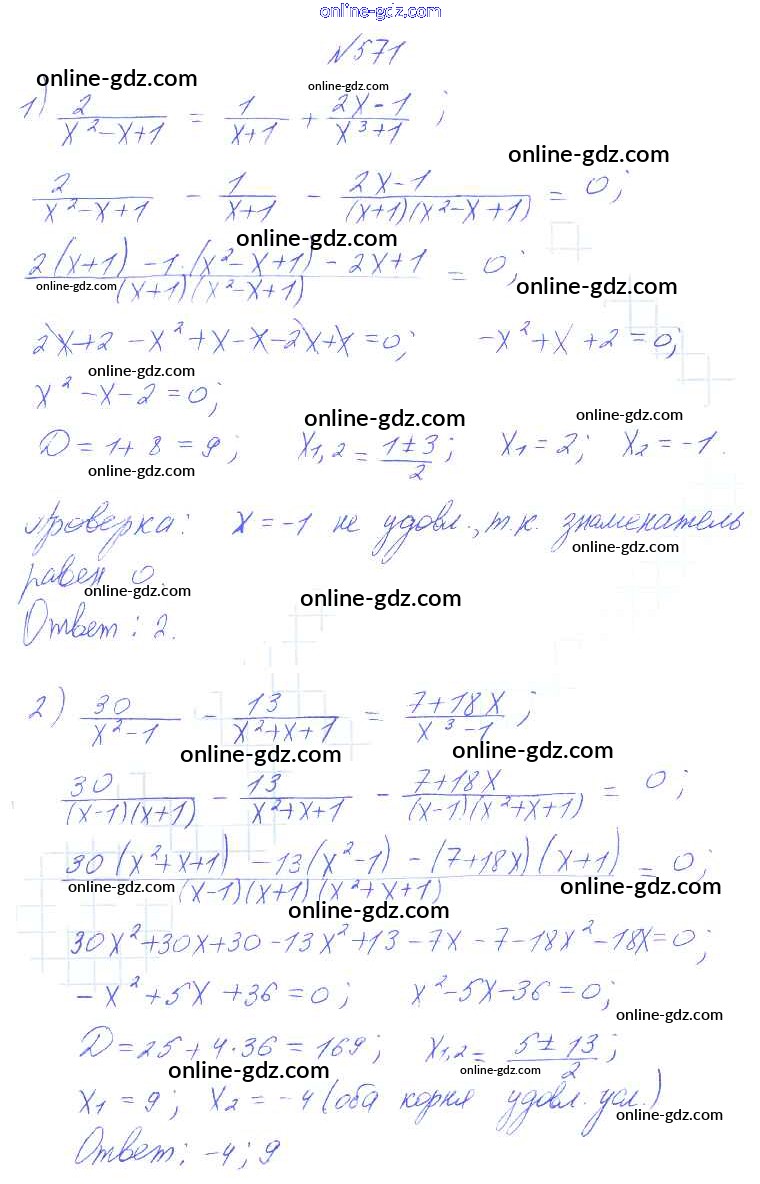 online-gdz.com
№571
online-gdz.com
online-gdz.com
1) 2/(x²-x+1) = 1/(x+1) + (2x-1)/(x³+1) ;
online-gdz.com
2/(x²-x+1) - 1/(x+1) - (2x-1)/((x+1)(x²-x+1)) = 0;
online-gdz.com
(2(x+1) -1·(x²-x+1) - 2x+1)/((x+1)(x²-x+1)) = 0;
online-gdz.com
online-gdz.com
2x+2 -x²+x-x-2x+x=0; -x²+x+2=0;
online-gdz.com
x²-x-2=0;
online-gdz.com
online-gdz.com
D=1+8=9; x1,2 = (1±3)/2; x1=2; x2=-1.
online-gdz.com
Проверка: x=-1 не удовл., т.к. знаменатель
online-gdz.com
равен 0.
online-gdz.com
online-gdz.com
Ответ: 2.
2) 30/(x²-1) - 13/(x²+x+1) = (7+18x)/(x³-1) ;
online-gdz.com
online-gdz.com
30/((x-1)(x+1)) - 13/(x²+x+1) - (7+18x)/((x-1)(x²+x+1)) = 0;
(30(x²+x+1) -13(x²-1) -(7+18x)(x+1))/((x-1)(x+1)(x²+x+1)) = 0;
online-gdz.com
online-gdz.com
online-gdz.com
30x²+30x+30-13x²+13-7x-7-18x²-18x=0;
-x²+5x+36=0; x²-5x-36=0;
online-gdz.com
D=25+4·36=169; x1,2 = (5±13)/2;
online-gdz.com
online-gdz.com
x1=9; x2=-4 (оба корня удовл. усл.)
online-gdz.com
Ответ: -4; 9